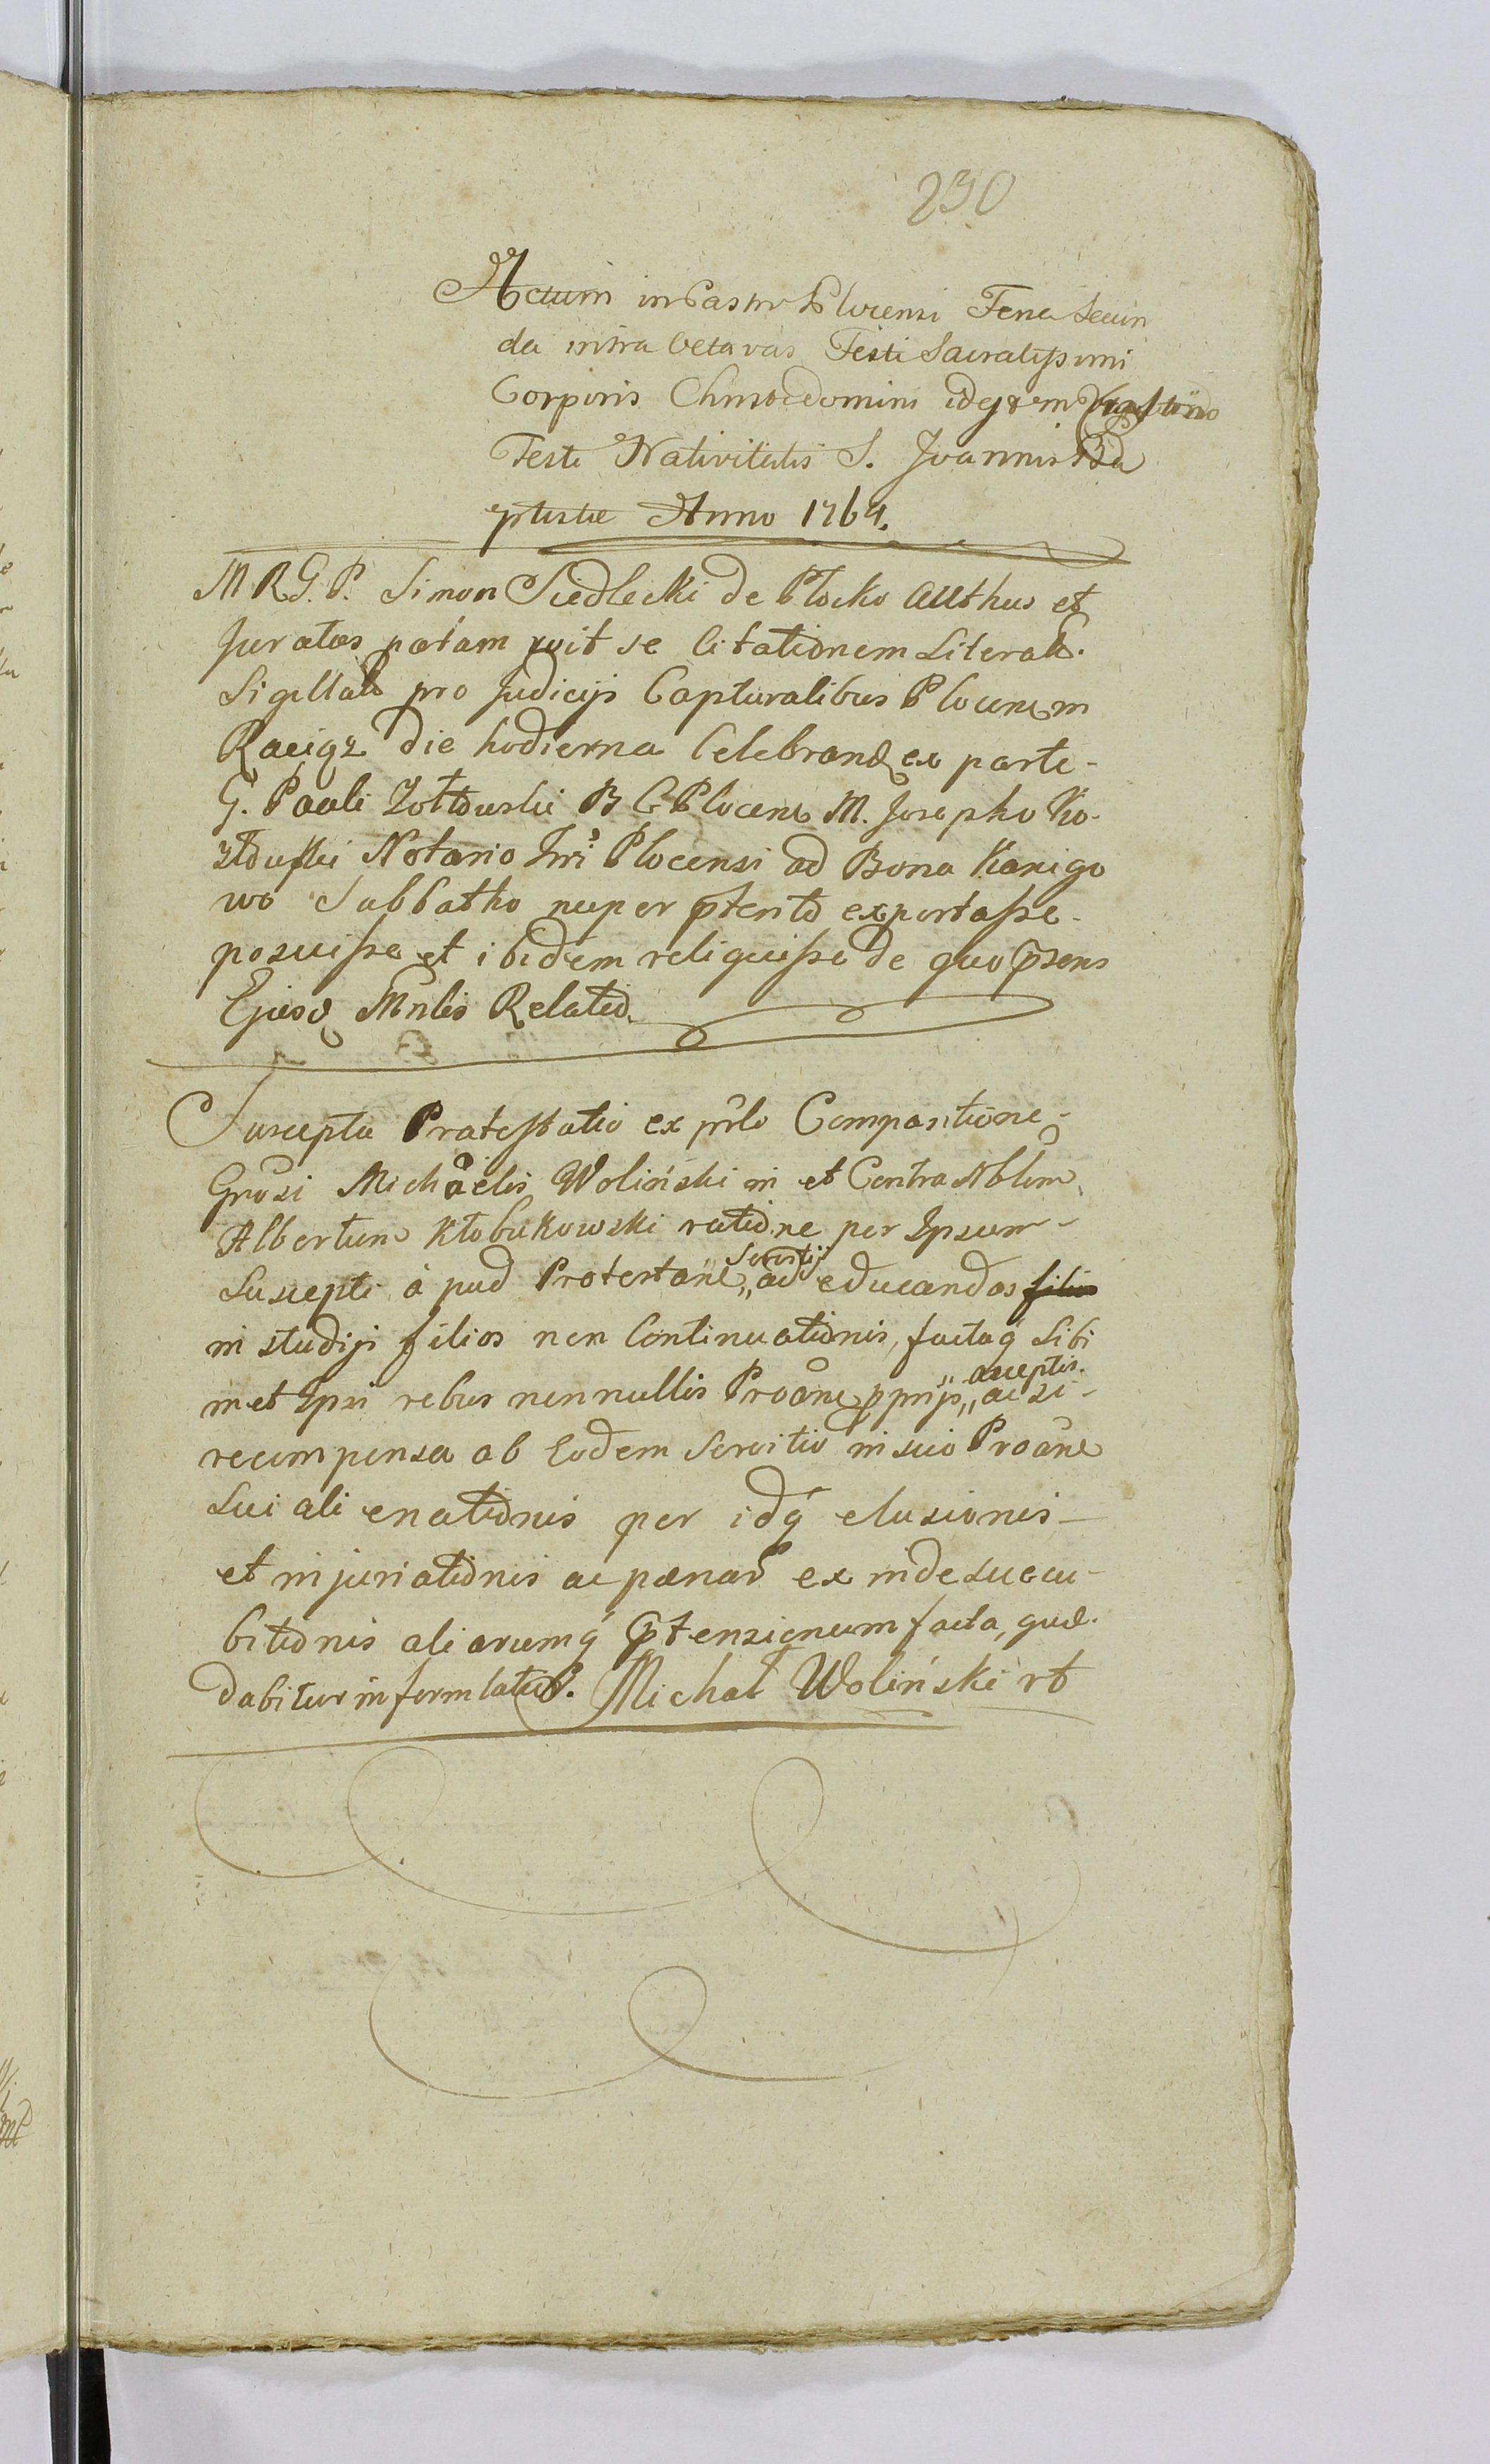 230
Actum in Castro Plocensi Feria Secun
da intra Octavas Festi Sacratissimi
Corporis Christi Domini
Festi Nativitatis S. Joannis Ba
ptistae Anno 1764.
M R G. P. Simon Siedlecki de Plocko Authus et
Juratus palam rcit se Citationem Literal.
Sigillal pro Judicijs Capturalibus Plocen in
Raciąz die hodierna Celebrand ex parte
G. Pauli Zołtowski B G Plocens M. Josepho Ko-
złowski Notario Plocensi ad Bona Kanigo
wo Sabbatho nuper ptento exportasse
posuisse et ibidem reliquisse de quo psens
Ejusd Mnlis Relatio.
Suscepta Protestatio ex prlo Comparitione
Grosi Michaelis Woliński in et Contra Nblem
Albertum Kłobukowski ratione per Ipsum
Suscepti à pud Protestane „ Servitij ad educandos filios
in studijs filios non Continuationis, factaq́ Sibi
met Ipsi rebus nonnullis Proane pprijs „ acceptis. ac si-
recompensa ab Eodem Servitio in suio Proane
Sui ali enationis per idq́ elusionis
et injuriationis ac paenar ex inde succu-
bitionis aliarumq́ ptensionum facta, quae.
dabitur in forma latiori. Michał Woliński rb